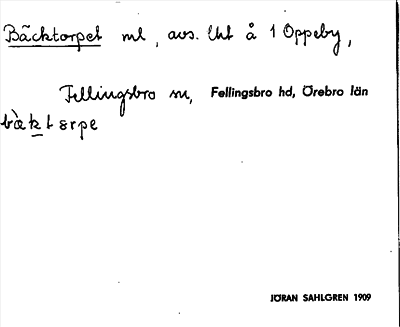 Bäcktorpet ml, avs. lht å 1 Oppeby,
Fellingsbro sn, Fellingsbro hd, Örebro län
bæ̀ktorpe
JÖRAN SAHLGREN 1909